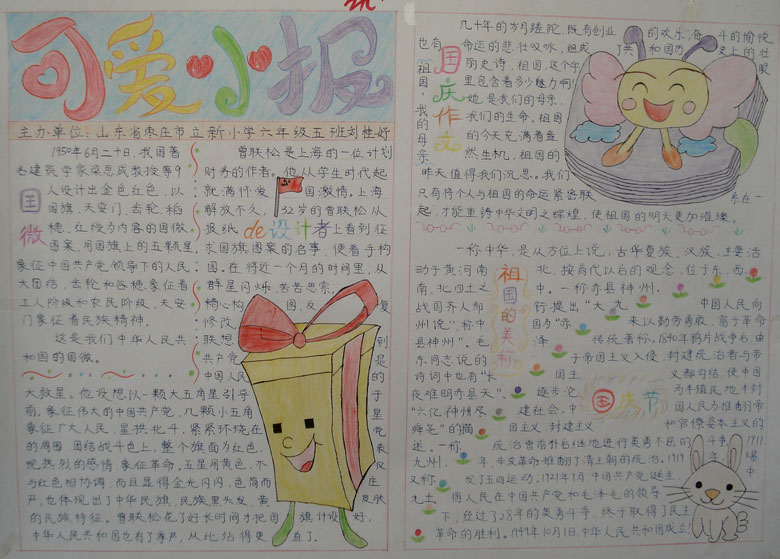 可爱小报
主办单位:山东省枣庄市立新小学六年级五班刘桂好
国徽
1950年6月二十日,我国著
名建筑学家梁思成教授等9
人设计出金色红色,以
国旗、天安门、齿轮、稻
穗、红绶为内容的国徽
图案,用国旗上的五颗星
象征中国共产党领导下的人民
大团结,齿轮和谷穗象征着
工人阶级和农民阶级,天安
门象征着民族精神。
这是我们中华人民共
和国的国徽。
de设计者
曾联松是上海的一位计划
财务的作者。他从学生时代起
就满怀爱国激情。上海
解放不久,32岁的曾联松从
报纸上看到征
求国旗图案的启事,便着手构
图。在将近一个月的时间里,从
群星闪烁,苦苦思索,
精心构图,反复
修改
联想到
共产党是
中国人民的
大救星。他设想以一颗大五角星引导于
前,象征伟大的中国共产党,几颗小五角星
象征广大人民,星拱北斗,紧紧环绕在
的周围,团结战斗色上,整个旗面为红色,表
现热烈的感情,象征革命。五星用黄色,不仅
与红色相协调,而且显得金光闪闪,色简而庄
严,也体现出了中华民旗,民族黑头发,黄皮肤
的民族特征。曾联松花了好长时间才把国旗计设好,
中华人民共和国也有了尊严,从此站得更直了。
国庆作文
几十年的岁月蹉跎,既有创业的欢乐,奋斗的愉悦
也有命运的悲壮叹咏,组成了共和国历史上的壮
丽史诗,祖国,这个字眼
里包含着多少魅力啊!
祖国,她是我们的母亲,
我们的生命,祖国
的今天充满着盎
然生机,祖国的
昨天值得我们沉思。我们
只有将个人与祖国的命运紧密联系在一
起,才能重铸中华文明之辉煌,使祖国的明天更加璀璨。
祖国的美称
一称中华,是从方位上说,古华夏族、汉族,主要活
动于黄河南北,按商代以后的观念,位于东、西、
南、北四土之中。一称赤县神州,
战国齐人邹衍提出“大九
州说”,称中国为“赤
县神州”。毛泽
东同志说的
诗词中也有“长
夜难明赤县天”、
“六亿神州尽
舜尧”的描
述。一称
九州,
又称
九土
国庆节
中国人民向
来以勤劳勇敢,富于革命
传统著称。1840年鸦片战争后,由
于帝国主义入侵,封建统治者与帝
又都勾结,使中国
逐步沦为半殖民地半封
建社会,中国人民为推翻帝
国主义,封建主义和官僚资本主义的
统治曾前仆后继地进行英勇不屈的斗争。1911
年,辛亥革命推翻了清王朝的统治。1919年,爆
发了五四运动,1921年7月,中国共产党诞生。中
国人民在中国共产党和毛泽毛的领导
下,经过了28年的英勇斗争,终于取得了民主
革命的胜利。1949年10月1日,中华人民共和国成立!